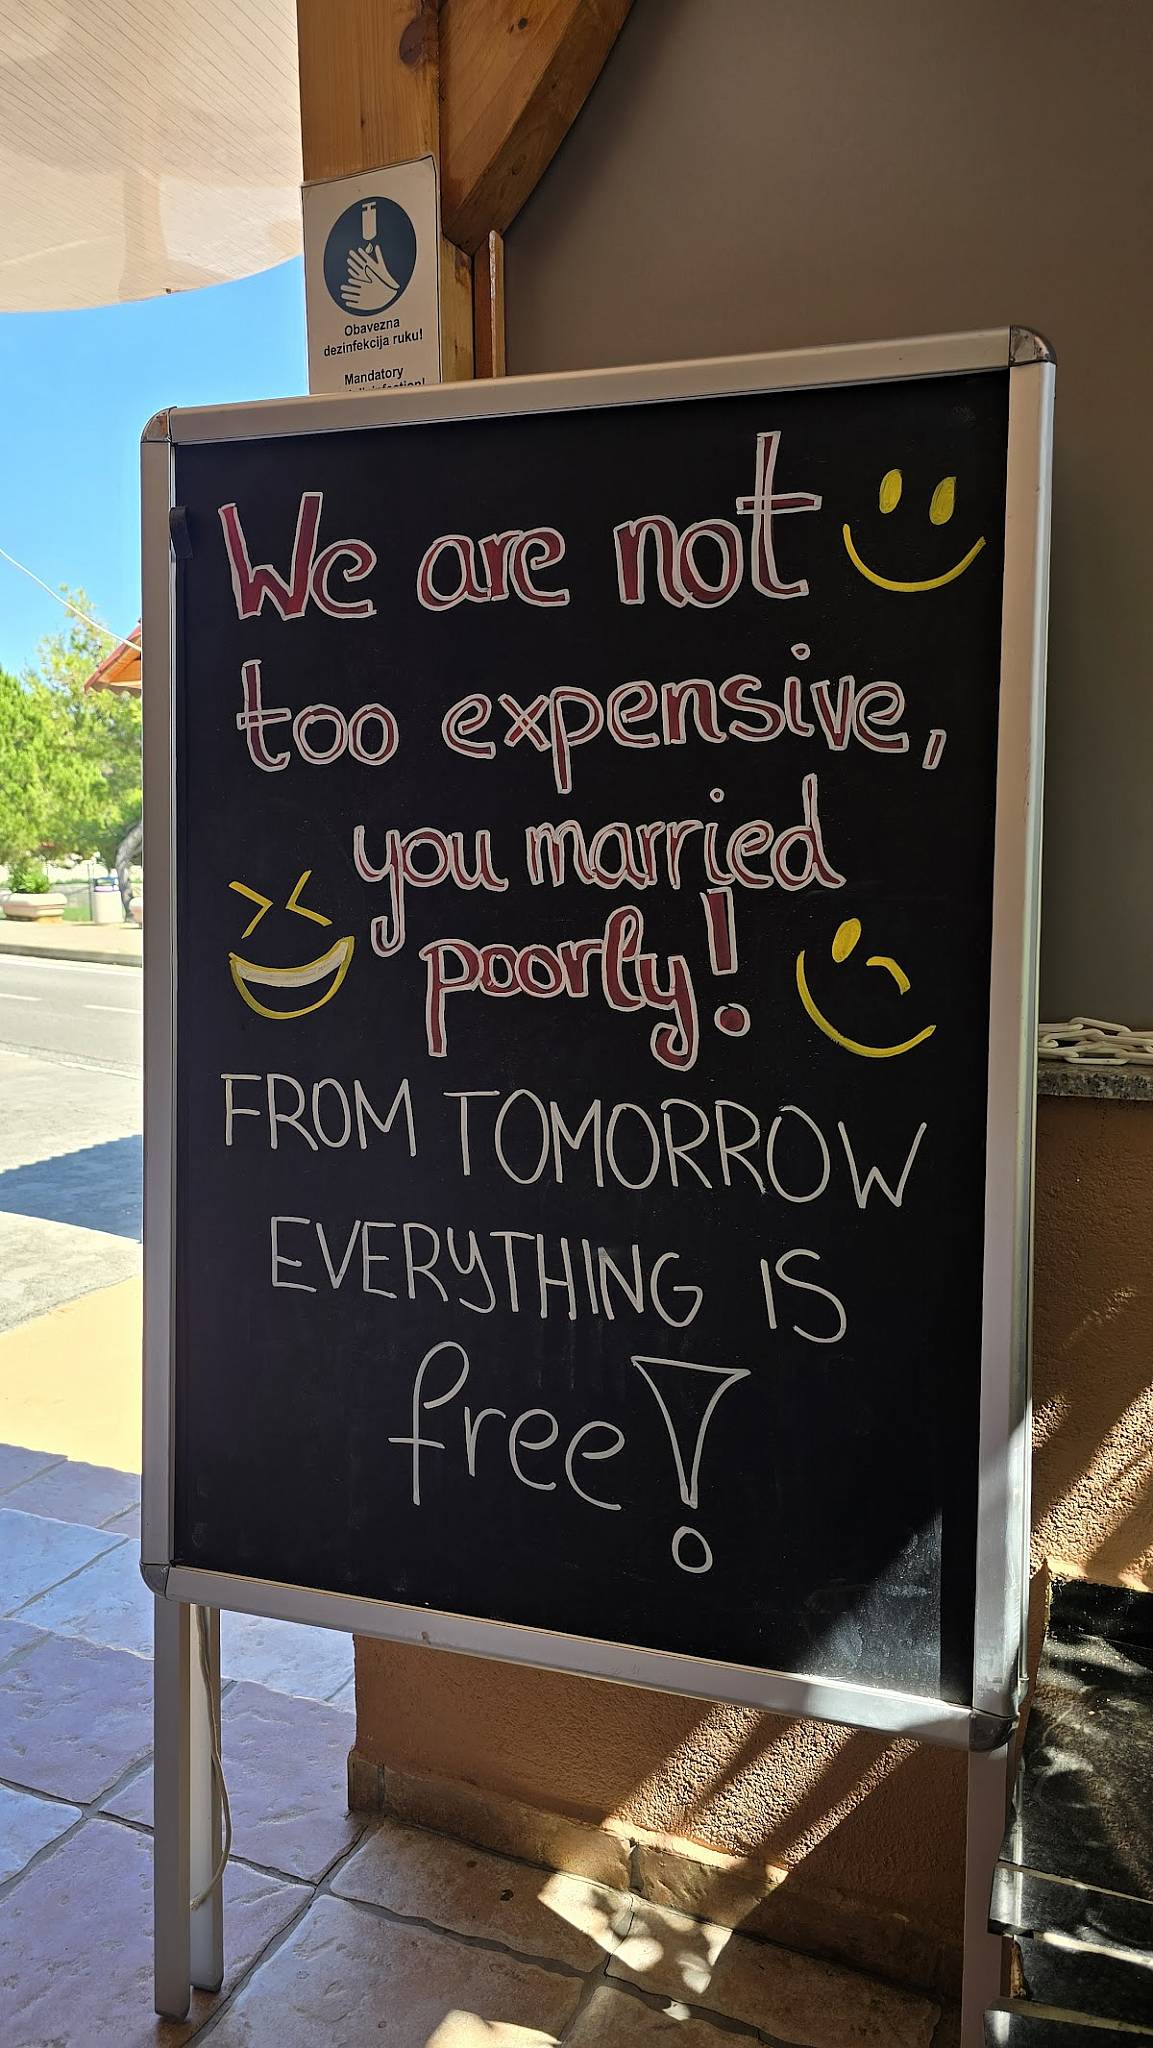 Obavezna
dezinfekcija ruku!
Mandatory
We are not
too expensive,
you married
poorly!
FROM TOMORROW
EVERYTHING IS
free!